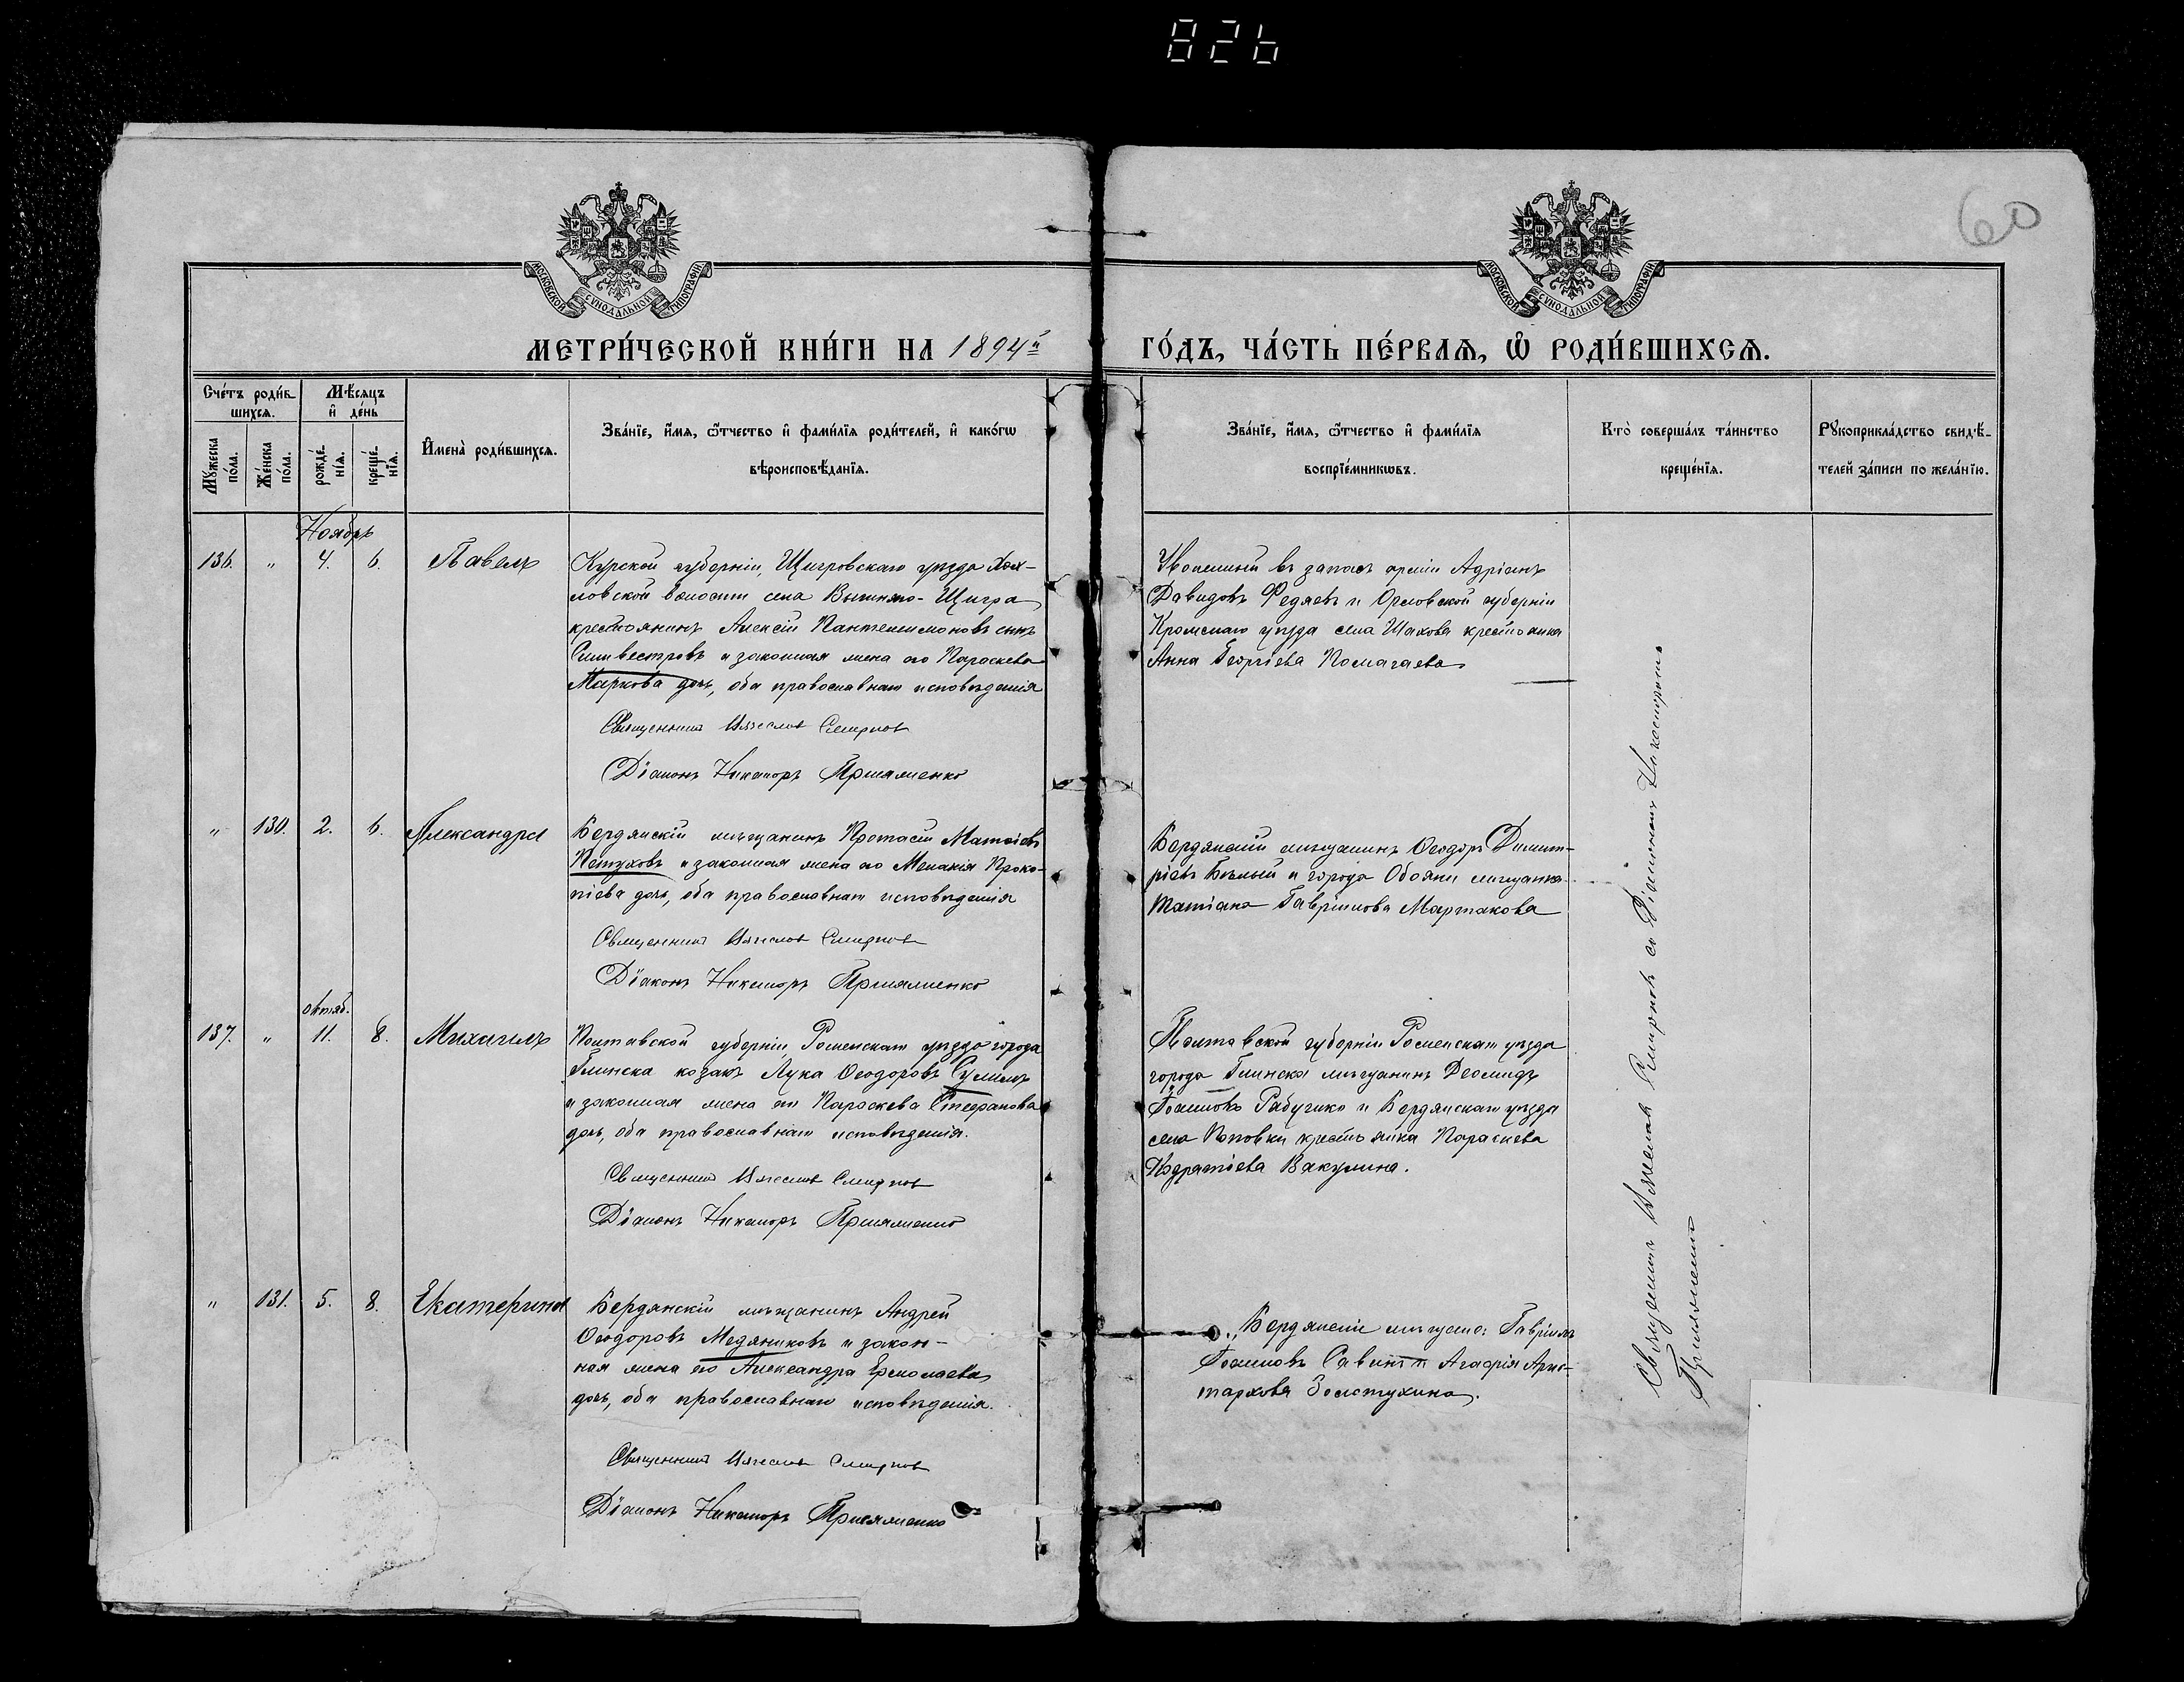 826
60
МОСКОВСКОЙ СѴНОДАЛЬНОЙ ТИПОГРАФІИ
МОСКОВСКОЙ СѴНОДАЛЬНОЙ ТИПОГРАФІИ
МЕТРИ́ЧЕСКОЙ КНИ́ГИ НА 1894й
ГО́ДЪ, ЧА́СТЬ ПЕ́РВАѦ, Ѽ РОДИ́ВШИХСѦ.
Сче́тъ роди́в
шихсѧ.
Мѣ́сѧцъ
и҆ де́нь
Мꙋ́жеска
по́ла.
Же́нска
по́ла.
рожде́-
нїѧ.
креще́-
нїѧ.
И҆мена̀ роди́вшихсѧ.
Зва́нїе, и҆́мѧ, ѻ҆́тчество и҆ фами́лїѧ роди́телей, и҆ како́гѡ
вѣроисповѣ́данїѧ.
Зва́нїе, и҆́мѧ, ѻ҆́тчество и҆ фами́лїѧ
воспрїе́мникѡвъ.
Кто̀ соверша́лъ та́инство
креще́нїѧ.
Рꙋкоприкла́дство свидѣ́-
телей за́писи по жела́нїю.
Ноябрь
136. " 4. 6. Павелъ
Курской губерніи, Щигровскаго уѣзда Хох-
ловской волости села Вышняго-Щигра
крестьянинъ Алексій Пантелеимоновъ сынъ
Сильвестровъ и законная жена его Параскева
Маркова дочь, оба православнаго исповѣданія
Священникъ Вячеславъ Смирновъ
Діаконъ Никаноръ Присяженко
Уволенный въ запасъ арміи Адріанъ
Давидовъ Федяевъ и Орловской губерніи
Кромскаго уѣзда села Шахова крестьянка
Анна Георгіева Помагаева
" 130. 2. 6. Александра
Бердянскій мѣщанинъ Протасій Матѳіевъ
Пѣтуховъ и законная жена его Меланія Проко-
піева дочь, оба православнаго исповѣданія
Священникъ Вячеславъ Смирновъ
Діаконъ Никаноръ Присяженко
Бердянскій мѣщанинъ Ѳеодоръ Димит-
ріевъ Бѣлый и города Обояни мѣщанка
Татіана Гавріилова Мартакова
октяб.
137. " 11. 8. Михаилъ
Полтавской губерніи Роменскаго уѣзда города
Глинска козакъ Лука Ѳеодоровъ Сулимъ
и законная жена его Параскева Стефанова
дочь, оба православнаго исповѣданія.
Священникъ Вячеславъ Смирновъ
Діаконъ Никаноръ Присяженко
Полтавской губерніи Роменскаго уѣзда
города Глинска мѣщанинъ Деомидъ
Іоанновъ Рабушко и Бердянскаго уѣзда
села Поповки крестьянка Параскева
Вакулина.
" 131. 5. 8. Екатерина
Бердянскій мѣщанинъ Андрей
Ѳеодоровъ Медяниковъ и закон-
ная жена его Александра Ермолаева
дочь, оба православнаго исповѣданія.
Священникъ Вячеславъ Смирновъ
Діаконъ Никаноръ Присяженко
Бердянскіе мѣщане: Гавріилъ
Іоанновъ Савинъ и Агафія Арис-
тархова Золотухина.
Священникъ Вячеславъ Смирновъ съ Діакономъ Никаноромъ
Присяженко